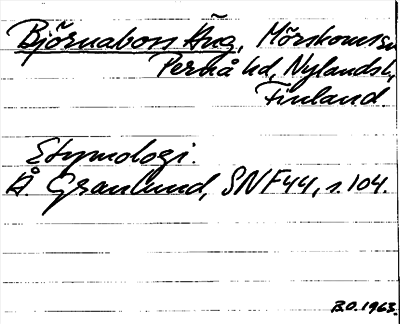 Björnaboss Äng, Mörskoms sn
Pernå hd, Nylands l.,
Finland
Etymologi.
Å Granlund, SNF44, s. 104.
B.O. 1963.